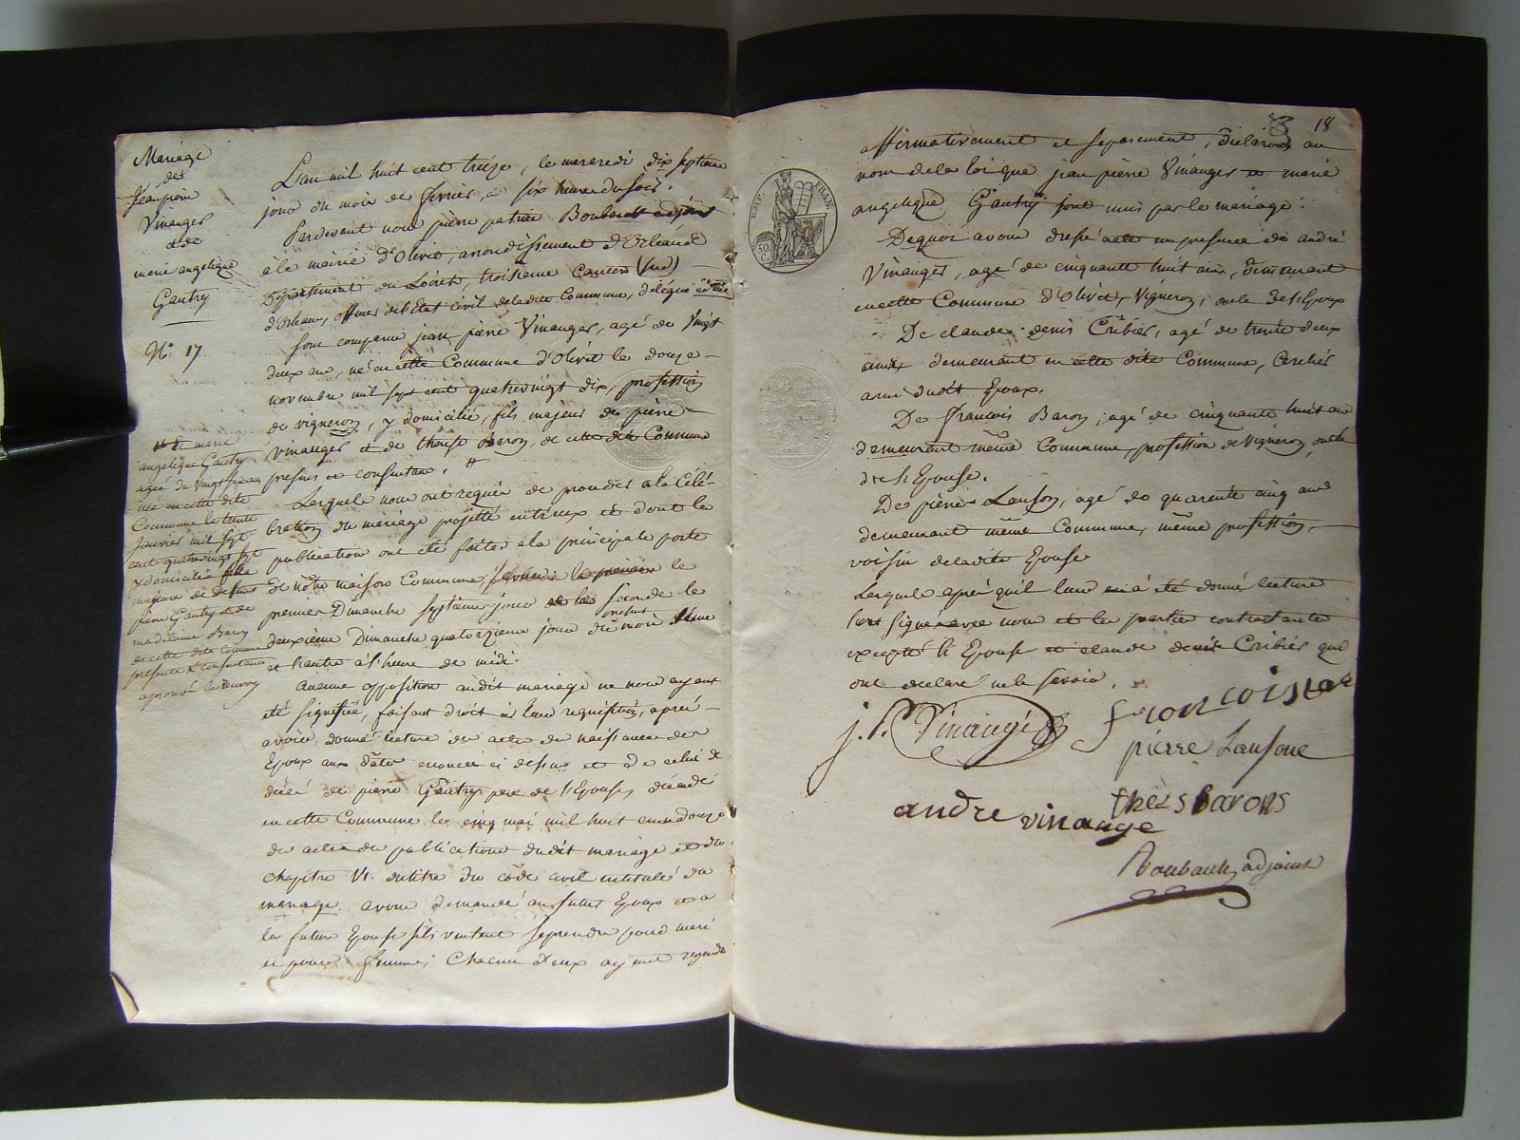 Mariage
de
Jean pierre
Vinauger
et de
marie angelique
Gautry
N.° 17
L'an mil huit cent treize, le mercredi dix septieme
jour du mois de fevrier, à six heures du soir.
Pardevant nous pierre patrice Boubault adjoint
à la mairie d'Olivet, arrondissement d'Orléans
Département du Loiret, troisieme Canton (sud)
d'Orleans, officier de l'Etat civil de la dite Commune, délégué
sont comparus jean pierre Vinauger, agé de Vingt
deux ans, né en cette Commune d'Olivet le douze
novembre mil sept cent quatrevingt dix, profession
de vigneron, y domicilié, fils majeur de pierre
vinauger et de thérese Baron, de cette dite Commune
presens et consentans. #
# et marie
angelique Gautry
agée de Vingt
née en cette dite
Commune le trente
janvier mil sept
cent quatrevingt
y domiciliée fille
majeure de defunt
pierre Gautry et de
madelaine Baron
de cette dite commune
presente & consentante
Lesquels nous ont requis de proceder à la Célé-
bration du mariage projetté entr'eux et dont les
publications ont été faites à la principale porte
de notre maison Commune, le
premier Dimanche septieme jour la seconde le
deuxieme Dimanche quatorzieme jour du present mois
et trente à l'heure de midi.
Aucune opposition audit mariage ne nous ayant
été signifiée, faisant droit à leur requisition, après
avoir donné lecture des actes de naissance des
Epoux aux dates enoncées ci dessus et de celui de
décès de pierre Gautry pere de l'Epouse, décédé
en cette Commune le cinq mai mil huit cent douze
des actes de publications dudit mariage et du
chapitre VI. du titre du code civil intitulé du
mariage avons demandé au futur Epoux et à
la future Epouse s'ils veulent se prendre pour mari
et pour femme; Chacun d'eux ayant repondu
18
affirmativement et séparement, déclarons au
nom de la loi que jean pierre Vinauger et marie
angelique Gautry sont unis par le mariage.
De quoi avons dressé acte en presence de andré
Vinauger, agé de cinquante huit ans, demeurant
en cette Commune d'Olivet, Vigneron, oncle de l'Epoux
De claude denis Cribier, agé de trente deux
ans demeurant en cette dite Commune, Cerclier
ami dudit Epoux.
De françois Baron, agé de cinquante huit ans
demeurant même Commune, profession de Vigneron, oncle
de l'Epouse.
De pierre Lanson, agé de quarante cinq ans
demeurant même Commune, même profession,
voisin de ladite Epouse
Lesquels après qu'il leur en à été donné lecture
ont signé avec nous et les parties contractantes
excepté l'Epouse et claude denis Cribier qui
ont declaré ne le savoir.
j. P. Vinauger
françois
pierre Lansone
andre vinauge
Boubault, adjoint